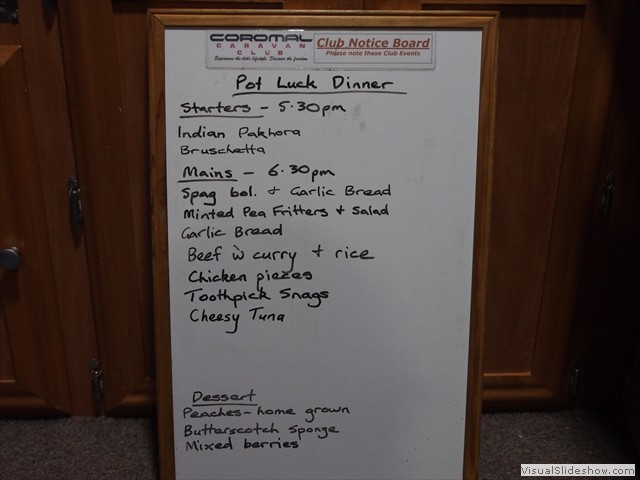 COROMAL
CARAVAN
CLUB
Experience the clubs lifestyle, Discover the freedom
Club Notice Board
Please note these Club Events
Pot Luck Dinner
Starters - 5.30pm
Indian Pakhora
Bruschetta
Mains - 6.30pm
Spag bol. + Garlic Bread
Minted Pea Fritters + Salad
Garlic Bread
Beef ẁ curry + rice
Chicken piezes
Toothpick Snags
Cheesy Tuna
Dessert
Peaches - home grown
Butterscotch Sponge
Mixed berries
VisualSlideshow.com